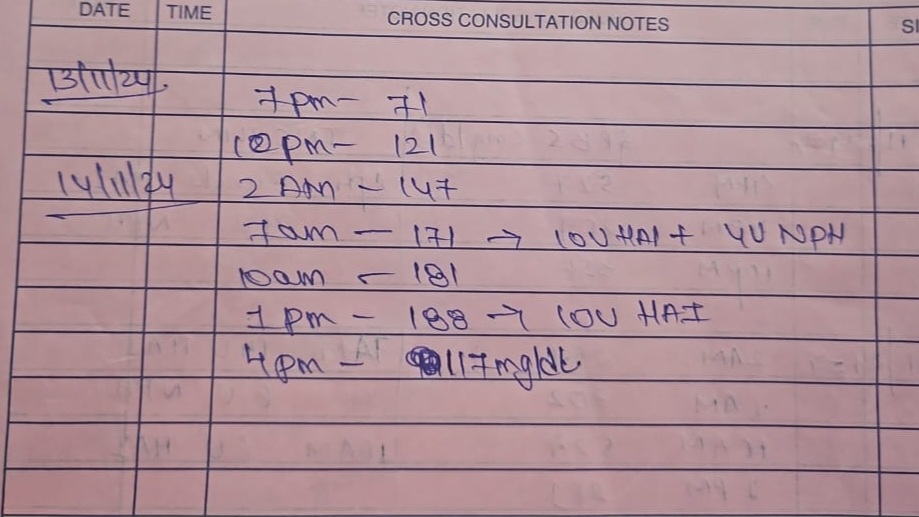 DATE TIME CROSS CONSULTATION NOTES SI
13/11/24
7pm- 71
10pm- 121
14/11/24 2 AM - 147
7am - 171 → 10U HAI + 4U NPH
10am - 181
1pm - 188 → 10U HAI
4pm - 117mg/dl